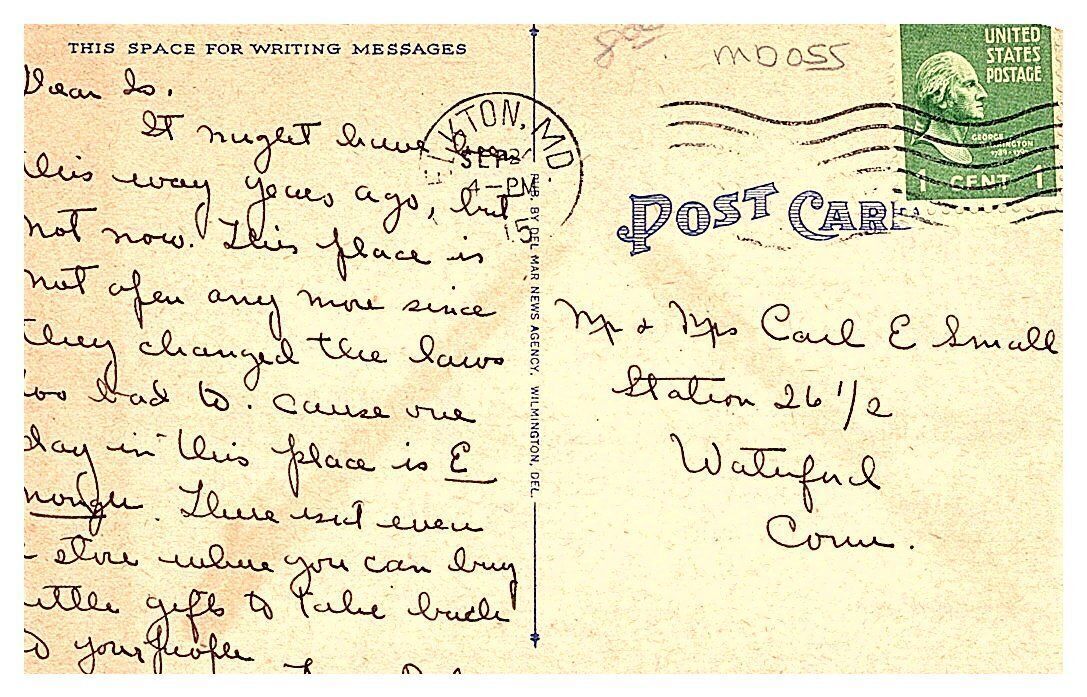 THIS SPACE FOR WRITING MESSAGES
Dear Is.
It might have been
this way years ago, but
not now. This place is
not open any more since
they changed the laws
too bad to. Cause one
day in this place is E
nough. There isnt even
a store where you can buy
little gifts to take back
to your people
PUB. BY DEL MAR NEWS AGENCY, WILMINGTON, DEL.
KTON, MD.
SEP 2
4-PM
15
800
MD055
UNITED
STATES
POSTAGE
GEORGE
WASHINGTON
1789-1797
1 CENT 1
POST CARD
Mr & Mrs Carl E Small
Station 26 1/2
Waterford
Conn.